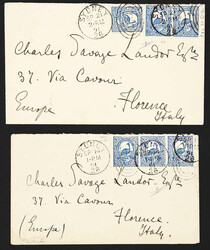 SYDNEY
28
Charles Savage Landor Esqre
37. Via Cavour
Europe
Florence
Italy
SYDNEY
28
Charles Savage Landor Esq
37. Via Cavour
(Europe)
Florence.
Italy.